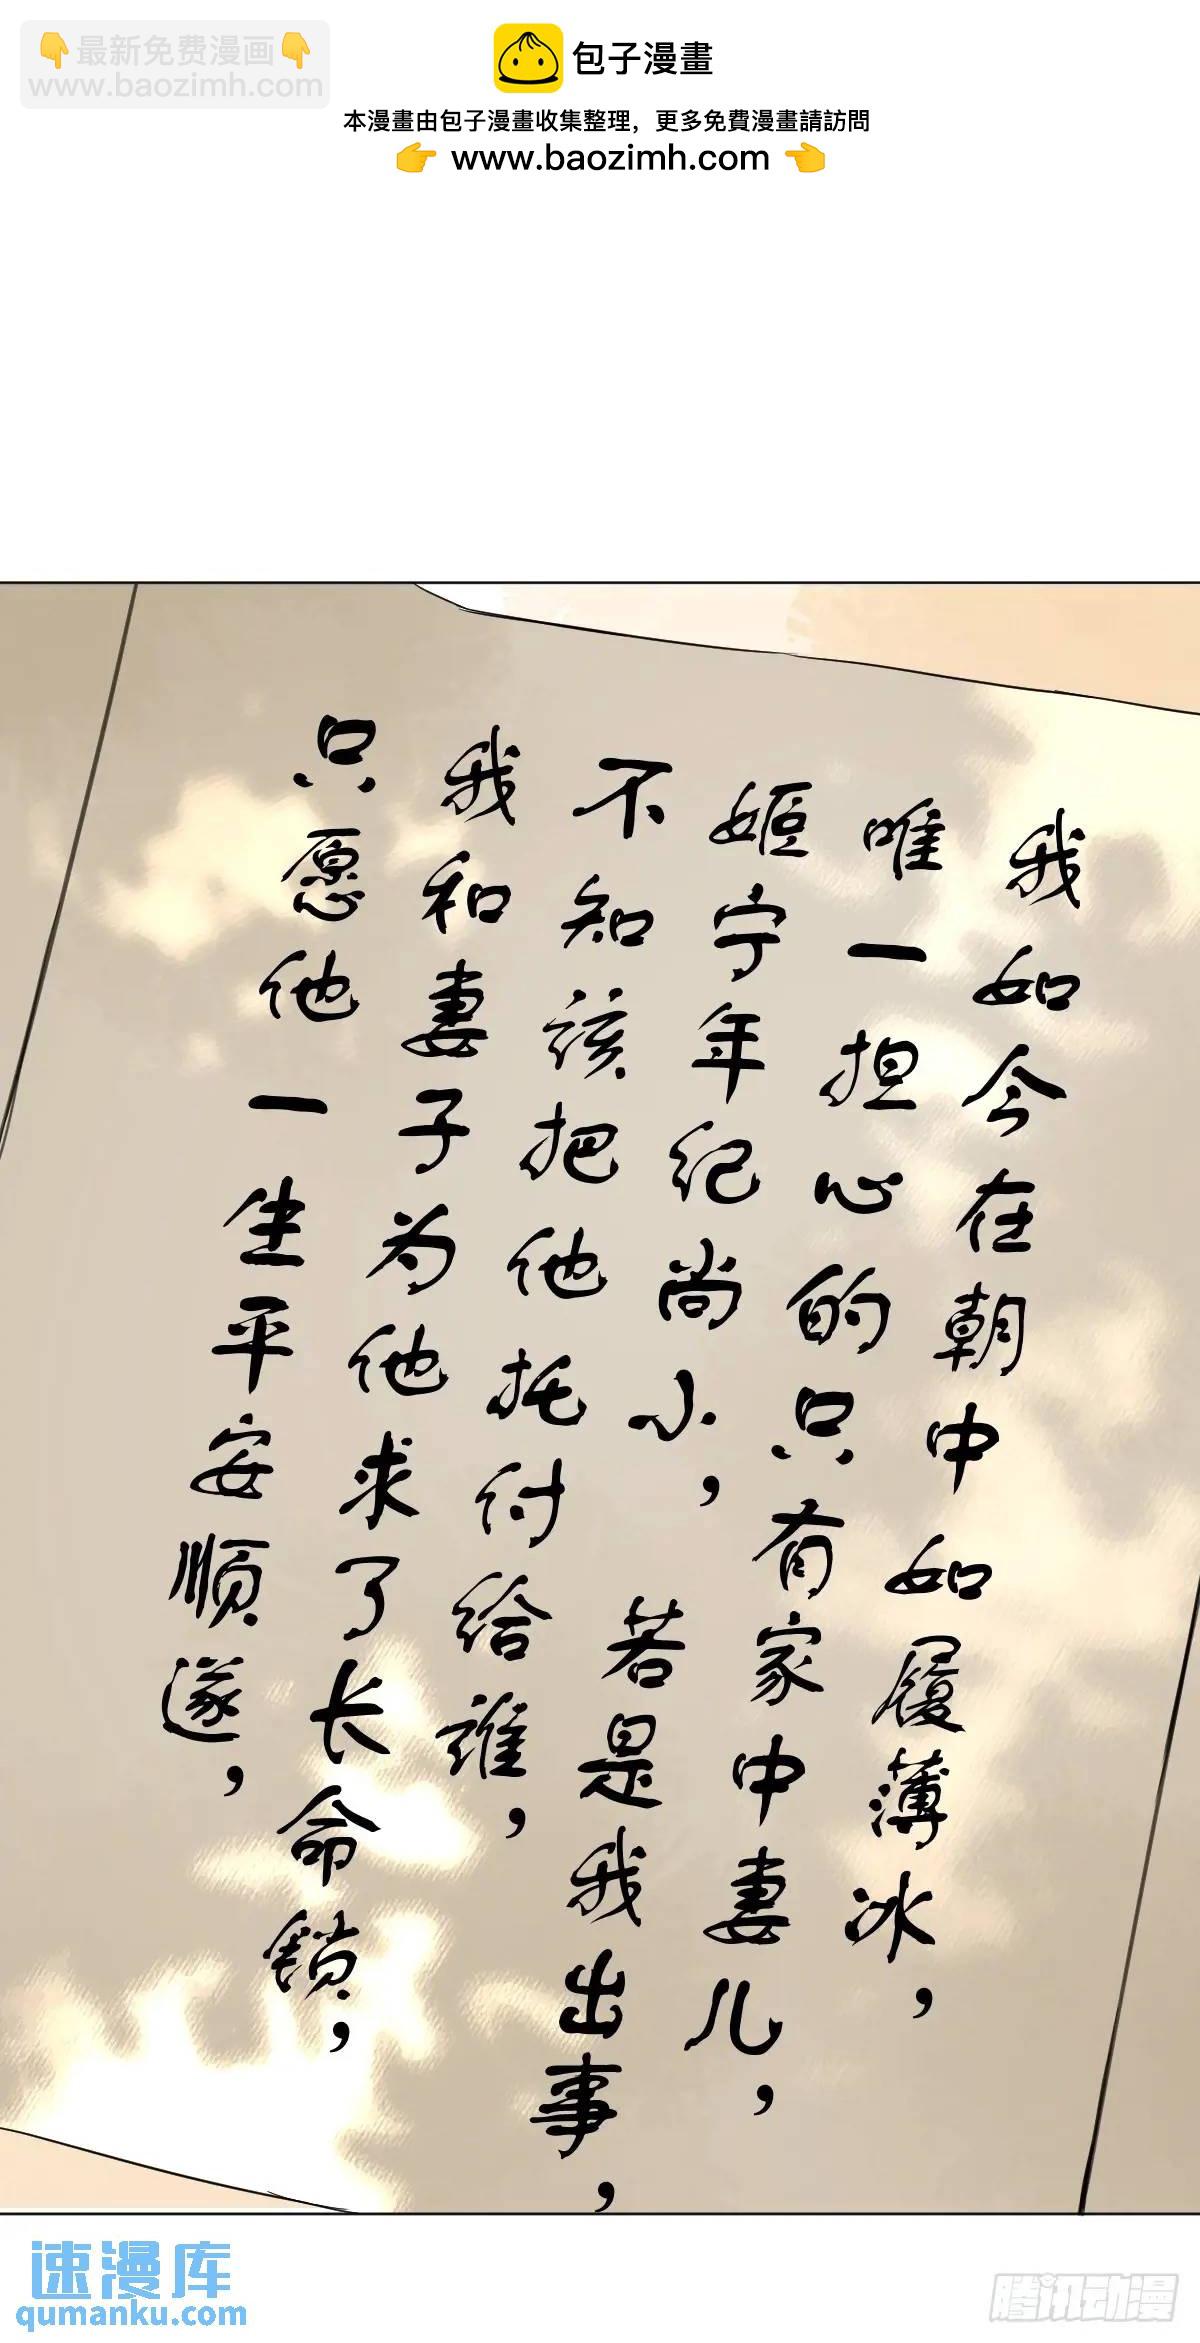 👇最新免费漫画👇
www.baozimh.com
包子漫畫
本漫畫由包子漫畫收集整理，更多免費漫畫請訪問
👉 www.baozimh.com 👈
我如今在朝中如履薄冰，
唯一担心的只有家中妻儿，
姬宁年纪尚小，若是我出事，
不知该把他托付给谁，
我和妻子为他求了长命锁，
只愿他一生平安顺遂，
速漫库
qumanku.com
腾讯动漫